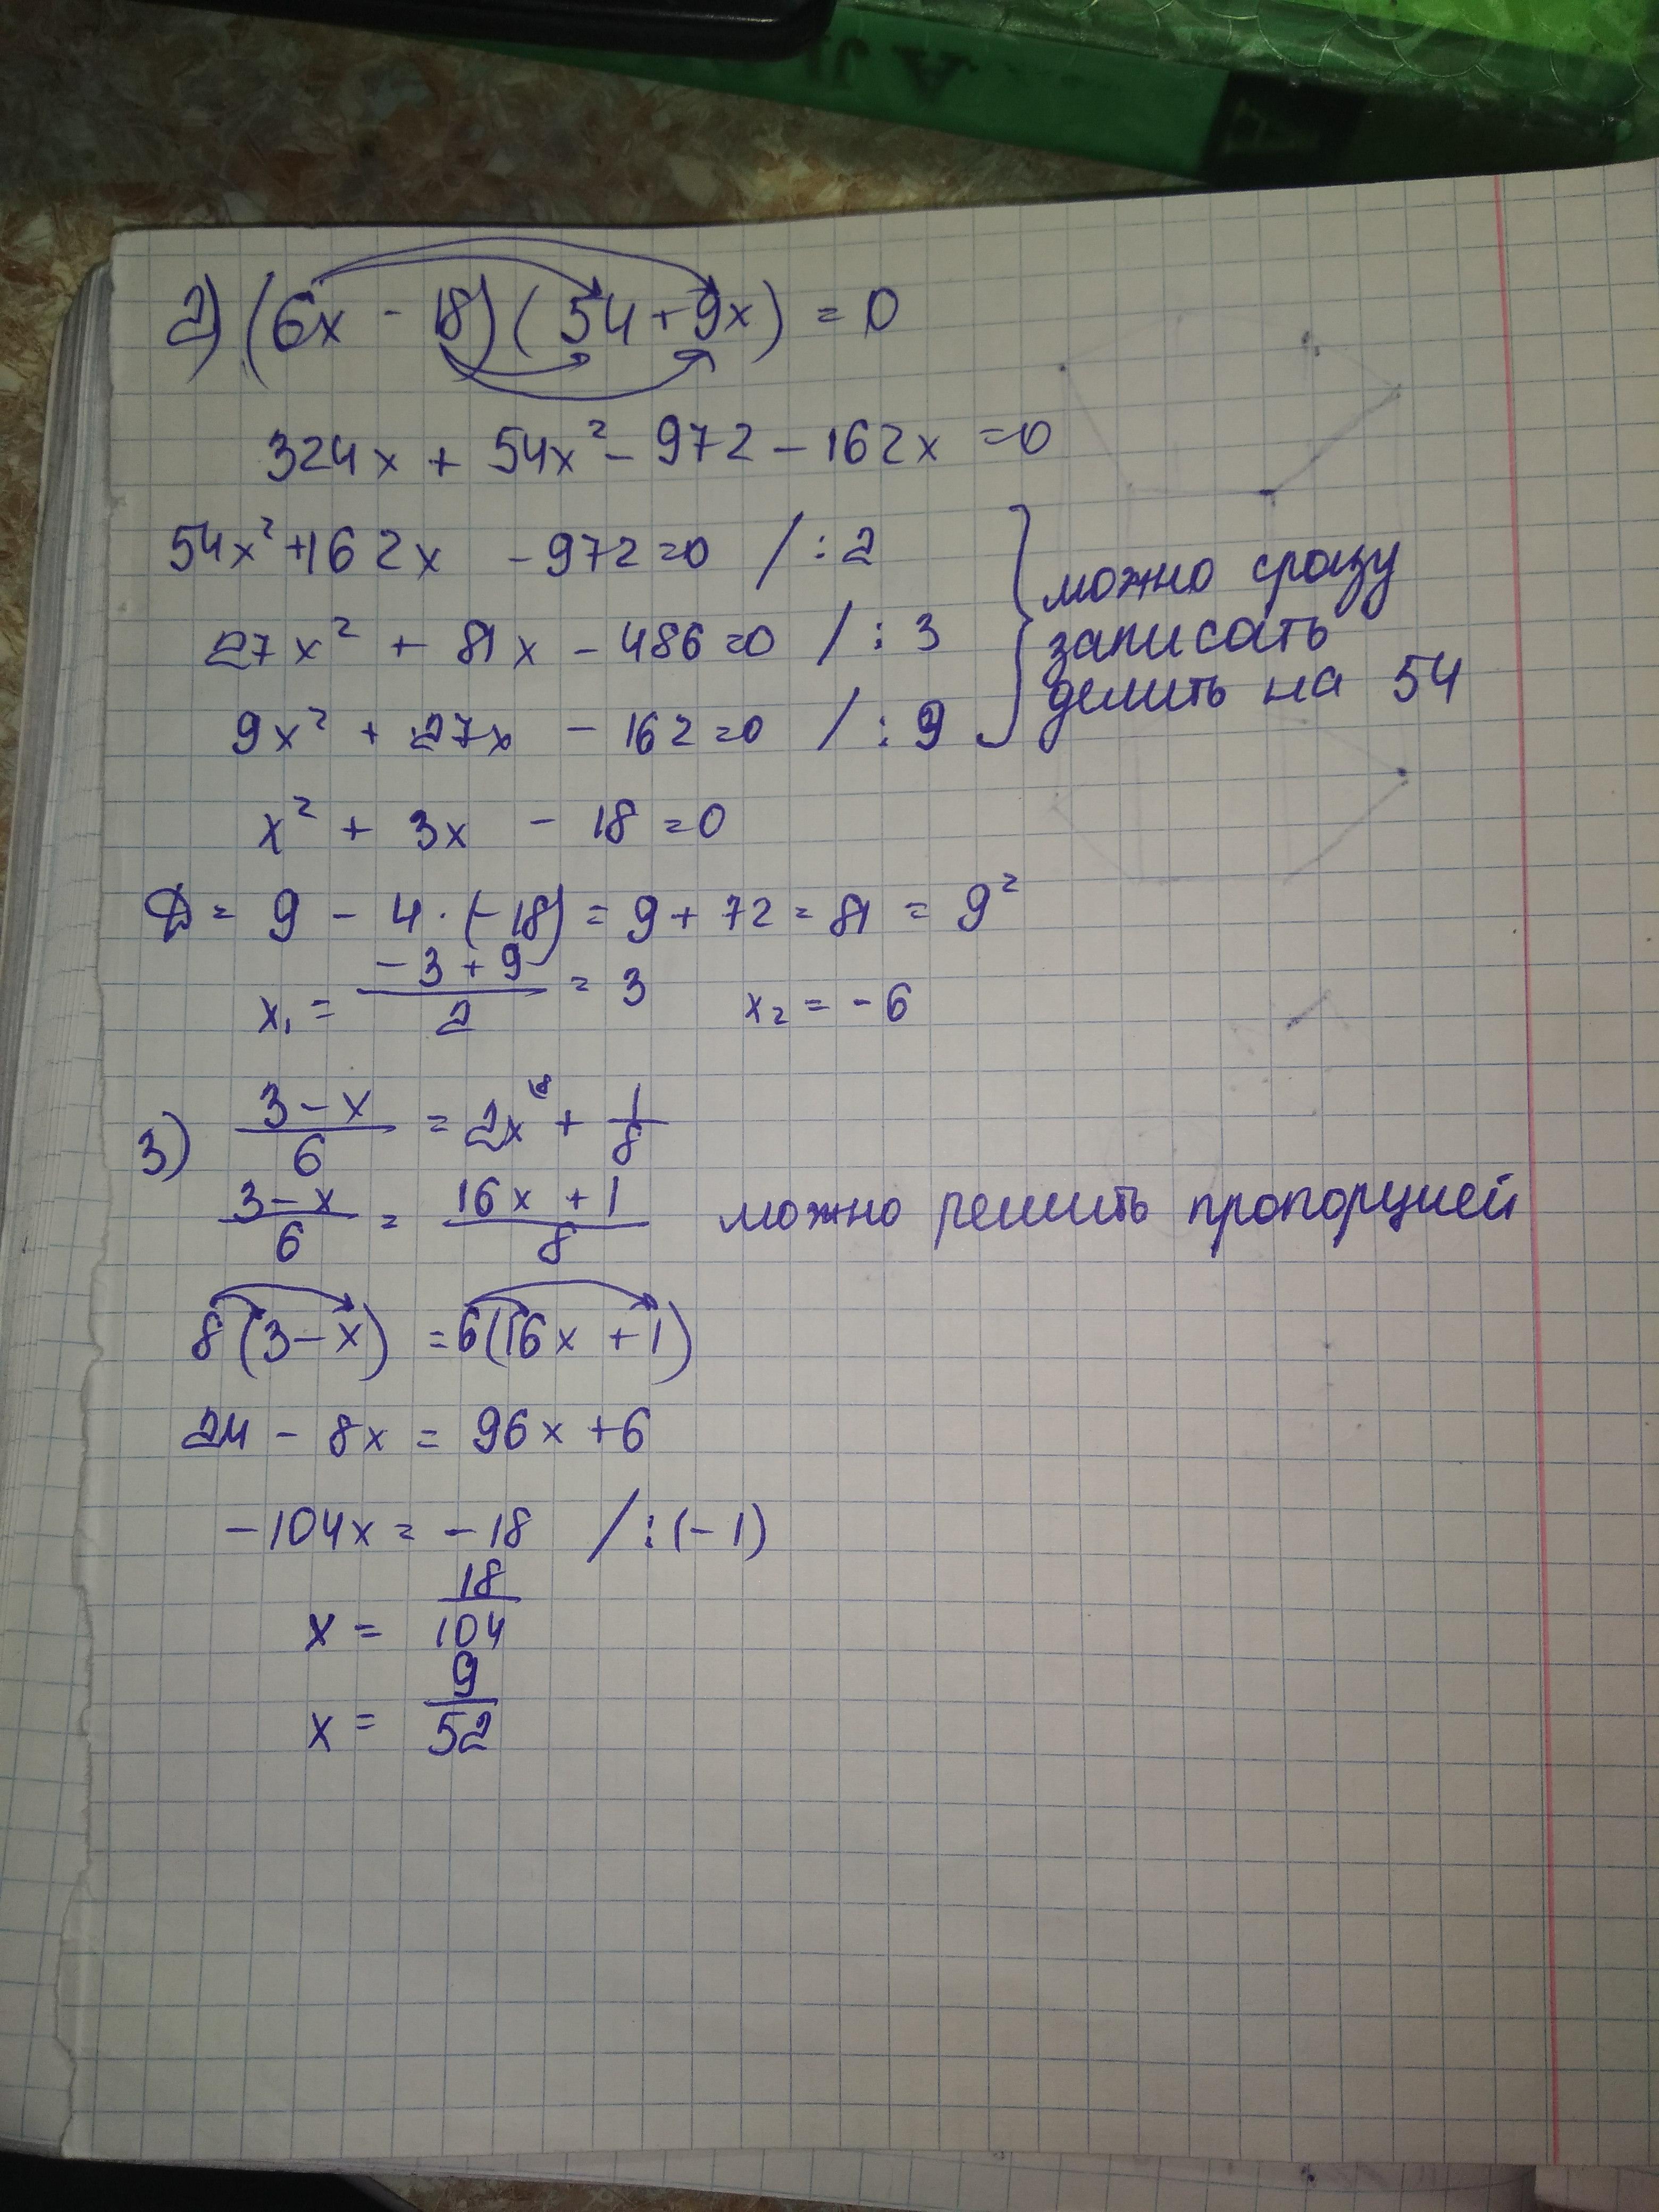 2) (6x - 18)(54 + 9x) = 0
324x + 54x² - 972 - 162x = 0
54x² + 162x - 972 = 0 / : 2
27x² + 81x - 486 = 0 / : 3
9x² + 27x - 162 = 0 / : 9
можно сразу
записать
делить на 54
x² + 3x - 18 = 0
D = 9 - 4 · (-18) = 9 + 72 = 81 = 9²
x₁ = (-3 + 9)/2 = 3 x₂ = -6
3) (3 - x)/6 = 2x + 1/8
(3 - x)/6 = (16x + 1)/8 можно решить пропорцией
8(3 - x) = 6(16x + 1)
24 - 8x = 96x + 6
-104x = -18 / : (-1)
x = 18/104
x = 9/52